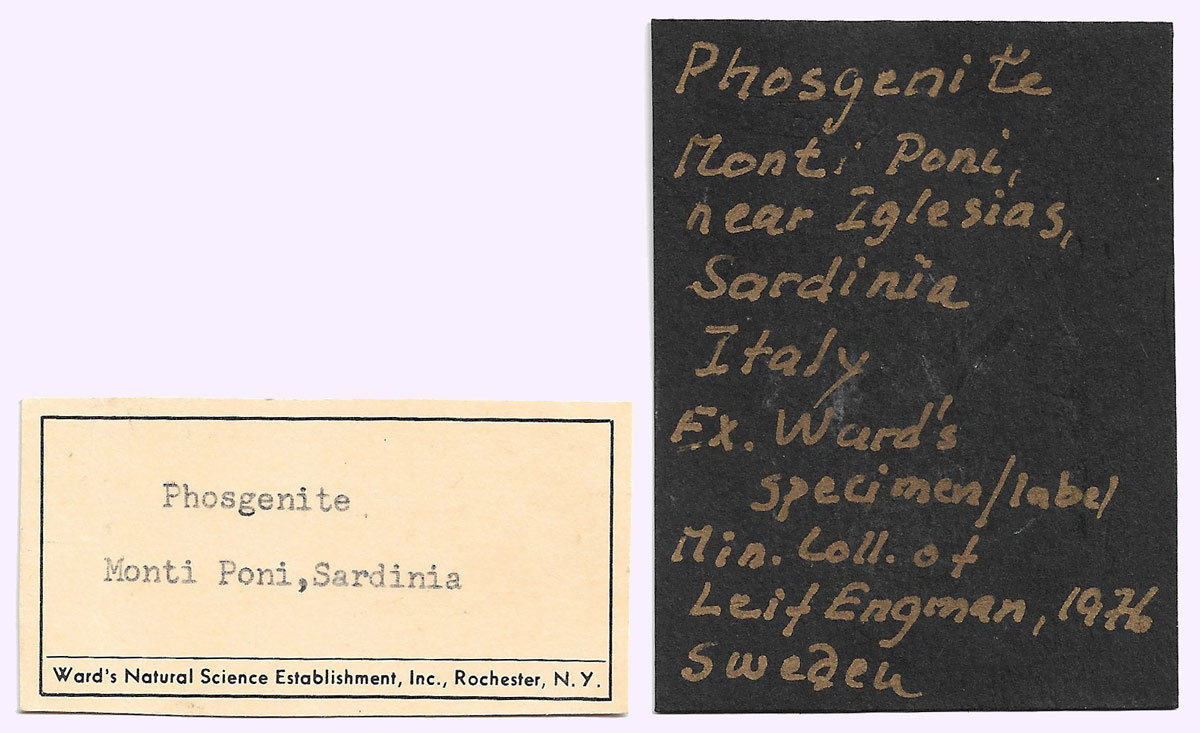 Phosgenite
Monti Poni,Sardinia
Ward's Natural Science Establishment, Inc., Rochester, N.Y.
Phosgenite
Monti Poni,
near Iglesias,
Sardinia
Italy
Ex. Ward's
specimen/label
Min. Coll. of
Leif Engman, 1976
Sweden